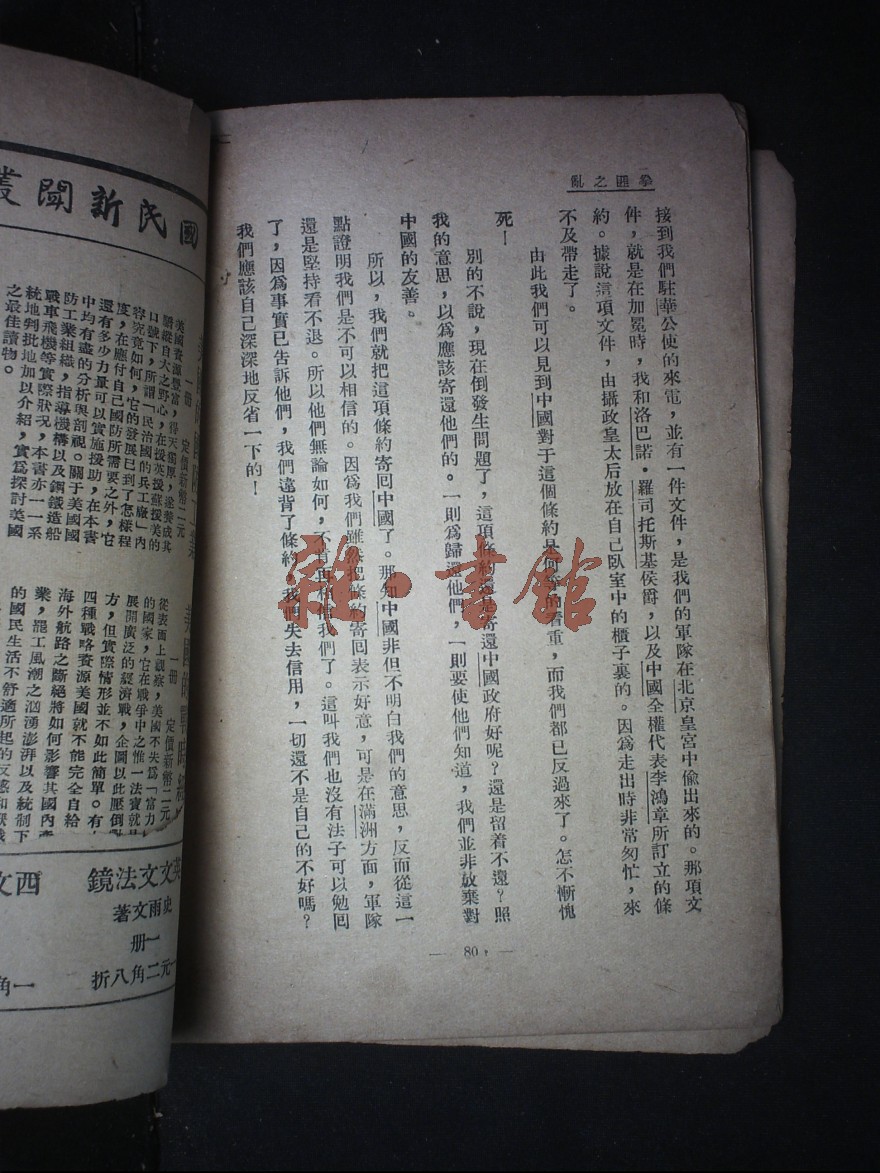 拳匪之亂
接到我們駐華公使的來電，並有一件文件，是我們的軍隊在北京皇宮中偷出來的。那項文
件，就是在加冕時，我和洛巴諾·羅司托斯基侯爵，以及中國全權代表李鴻章所訂立的條
約。據說這項文件，由攝政皇太后放在自己臥室中的櫃子裏的。因爲走出時非常匆忙，來
不及帶走了。
由此我們可以見到中國對于這個條約是何等的看重，而我們都已反過來了。怎不慚愧
死！
別的不說，現在倒發生問題了，這項條約還是寄還中國政府好呢？還是留着不還？照
我的意思，以爲應該寄還他們的。一則爲歸還他們，一則要使他們知道，我們並非放棄對
中國的友善。
所以，我們就把這項條約寄回中國了。那知中國非但不明白我們的意思，反而從這一
點證明我們是不可以相信的。因爲我們雖然把條約寄回表示好意，可是在滿洲方面，軍隊
還是堅持看不退。所以他們無論如何，不肯再相信我們了。這叫我們也沒有法子可以勉囘
了，因爲事實已告訴他們，我們違背了條約，我們失去信用，一切還不是自己的不好嗎？
我們應該自己深深地反省一下的！
— 80 —
雜·書館
國民新聞叢
一冊 定價新幣二元
美國資源豐富，得天獨厚，遂養成其
驕縱自大之野心，在援英援蘇援美的
口號下，所謂「民治國的兵工廠」內
容究竟如何，它的發展已到了怎樣程
度，在應付自己國防所需要之外，它
還有多少力量可以實施援助，在本書
中均有盡的分析與剖視。關于美國國
防工業組織，指導機構以及鋼鐵造船
戰車飛機等實際狀況，本書亦一一系
統地判批地加以介紹，實爲探討美國
之最佳讀物。
一冊 定價新幣二元
從表面上觀察，美國不失爲「富力
的國家，它在戰爭中之惟一法寶就是
展開廣泛的經濟戰，企圖以此壓倒
方，但實際情形並不如此簡單。有
四種戰略資源美國就不能完全自給
海外航路之斷絕將如何影響其國內產
業，罷工風潮之洶湧澎湃以及統制下
的國民生活不舒適所起的反感和厭戰
英文文法鏡
史雨文著
一冊
一元二角八折
西文
一角